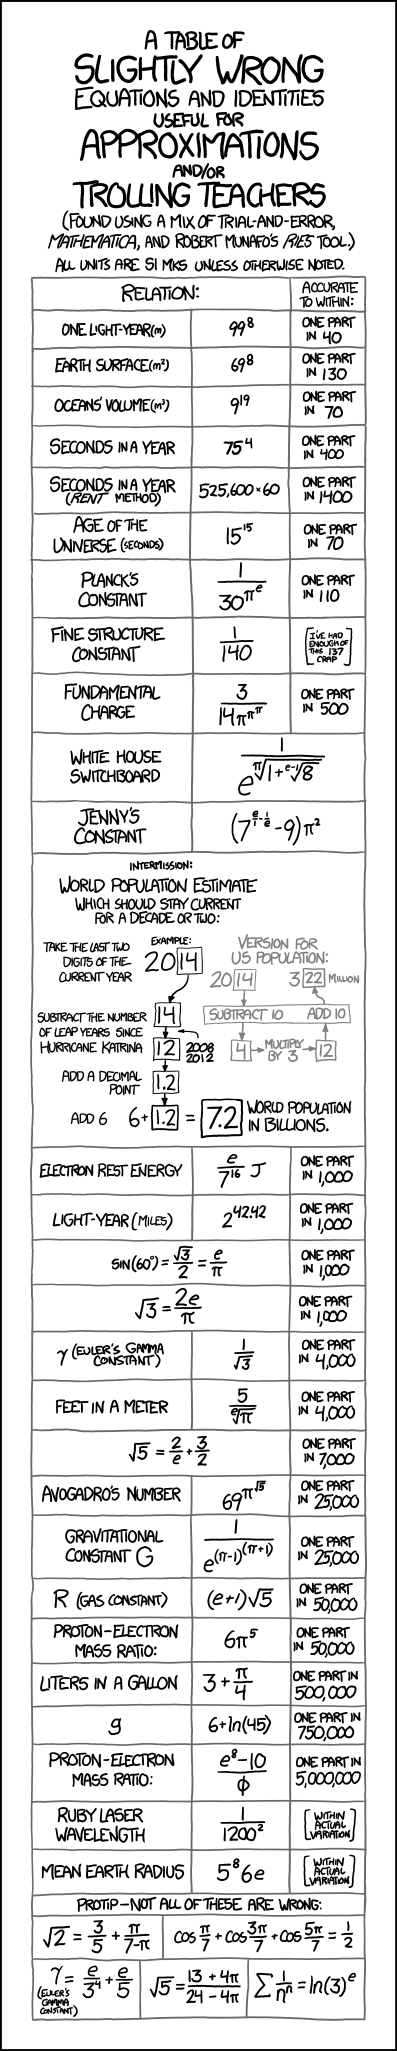 A TABLE OF
SLIGHTLY WRONG
EQUATIONS AND IDENTITIES
USEFUL FOR
APPROXIMATIONS
AND/OR
TROLLING TEACHERS
(FOUND USING A MIX OF TRIAL-AND-ERROR,
MATHEMATICA, AND ROBERT MUNAFO'S RIES TOOL.)
ALL UNITS ARE SI MKS UNLESS OTHERWISE NOTED.
RELATION:
ACCURATE
TO WITHIN:
ONE LIGHT-YEAR(m) 99^8 ONE PART IN 40
EARTH SURFACE(m²) 69^8 ONE PART IN 130
OCEANS' VOLUME(m³) 9^19 ONE PART IN 70
SECONDS IN A YEAR 75^4 ONE PART IN 400
SECONDS IN A YEAR (RENT METHOD) 525,600×60 ONE PART IN 1400
AGE OF THE UNIVERSE (SECONDS) 15^15 ONE PART IN 70
PLANCK'S CONSTANT 1/(30^(π^e)) ONE PART IN 110
FINE STRUCTURE CONSTANT 1/140 [I'VE HAD ENOUGH OF THIS 137 CRAP]
FUNDAMENTAL CHARGE 3/(14π^(π^π)) ONE PART IN 500
WHITE HOUSE SWITCHBOARD 1/(e^(π√(1+(e-1)√8)))
JENNY'S CONSTANT (7^(e/1-1/e)-9)π²
INTERMISSION:
WORLD POPULATION ESTIMATE
WHICH SHOULD STAY CURRENT
FOR A DECADE OR TWO:
TAKE THE LAST TWO
DIGITS OF THE
CURRENT YEAR
EXAMPLE:
20 14
14
SUBTRACT THE NUMBER
OF LEAP YEARS SINCE
HURRICANE KATRINA
12
2008
2012
ADD A DECIMAL
POINT
1.2
ADD 6 6+1.2 = 7.2 WORLD POPULATION
IN BILLIONS.
VERSION FOR
US POPULATION:
20 14 3 22 MILLION
SUBTRACT 10 ADD 10
4 MULTIPLY BY 3 12
ELECTRON REST ENERGY e/7^16 J ONE PART IN 1,000
LIGHT-YEAR (MILES) 2^42.42 ONE PART IN 1,000
SIN(60°) = √3/2 = e/π ONE PART IN 1,000
√3 = 2e/π ONE PART IN 1,000
γ (EULER'S GAMMA CONSTANT) 1/√3 ONE PART IN 4,000
FEET IN A METER 5/(e√π) ONE PART IN 4,000
√5 = 2/e + 3/2 ONE PART IN 7,000
AVOGADRO'S NUMBER 69^(π^√5) ONE PART IN 25,000
GRAVITATIONAL CONSTANT G 1/(e^((π-1)^(π+1))) ONE PART IN 25,000
R (GAS CONSTANT) (e+1)√5 ONE PART IN 50,000
PROTON-ELECTRON MASS RATIO: 6π^5 ONE PART IN 50,000
LITERS IN A GALLON 3 + π/4 ONE PART IN 500,000
g 6+ln(45) ONE PART IN 750,000
PROTON-ELECTRON MASS RATIO: (e^8-10)/ϕ ONE PART IN 5,000,000
RUBY LASER WAVELENGTH 1/(1200²) [WITHIN ACTUAL VARIATION]
MEAN EARTH RADIUS 5^8 6e [WITHIN ACTUAL VARIATION]
PROTIP-NOT ALL OF THESE ARE WRONG:
√2 = 3/5 + π/(7-π)
cos π/7 + cos 3π/7 + cos 5π/7 = 1/2
γ = e/3^4 + e/5
(EULER'S GAMMA CONSTANT)
√5 = (13 + 4π)/(24 - 4π)
Σ 1/n^n = ln(3)^e